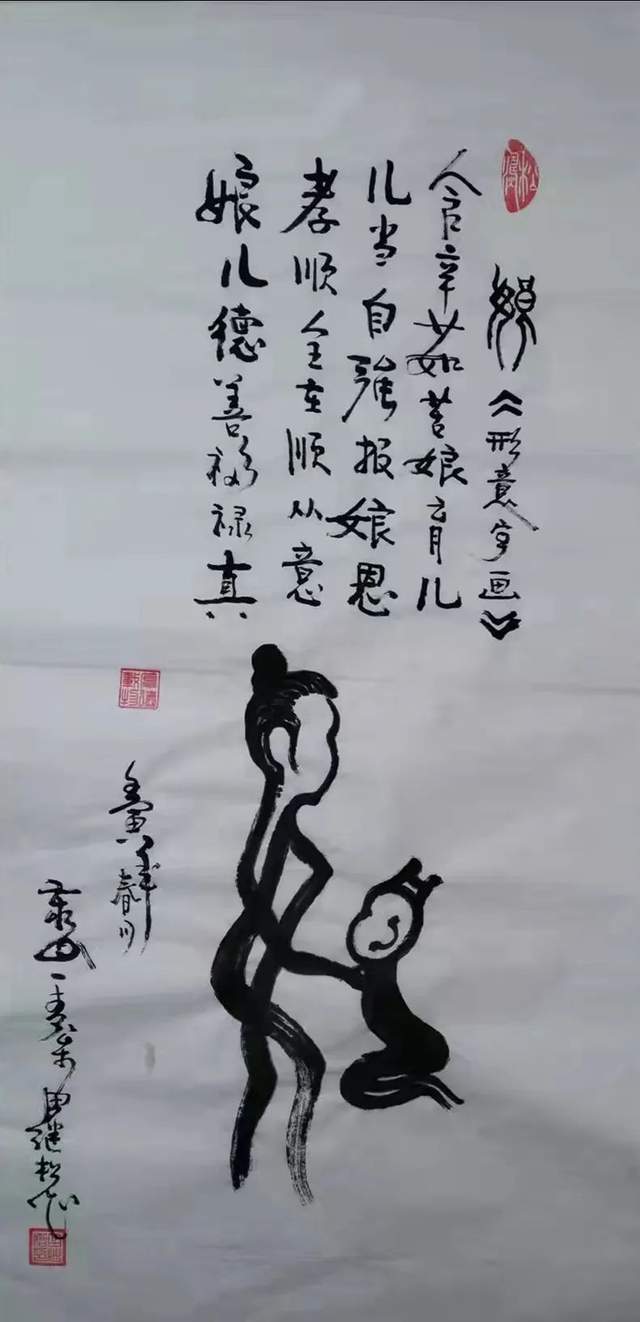 娘《形意字画》
含辛茹苦娘育儿
儿当自强报娘恩
孝顺全在顺从意
娘儿德善福禄真
春月
继松